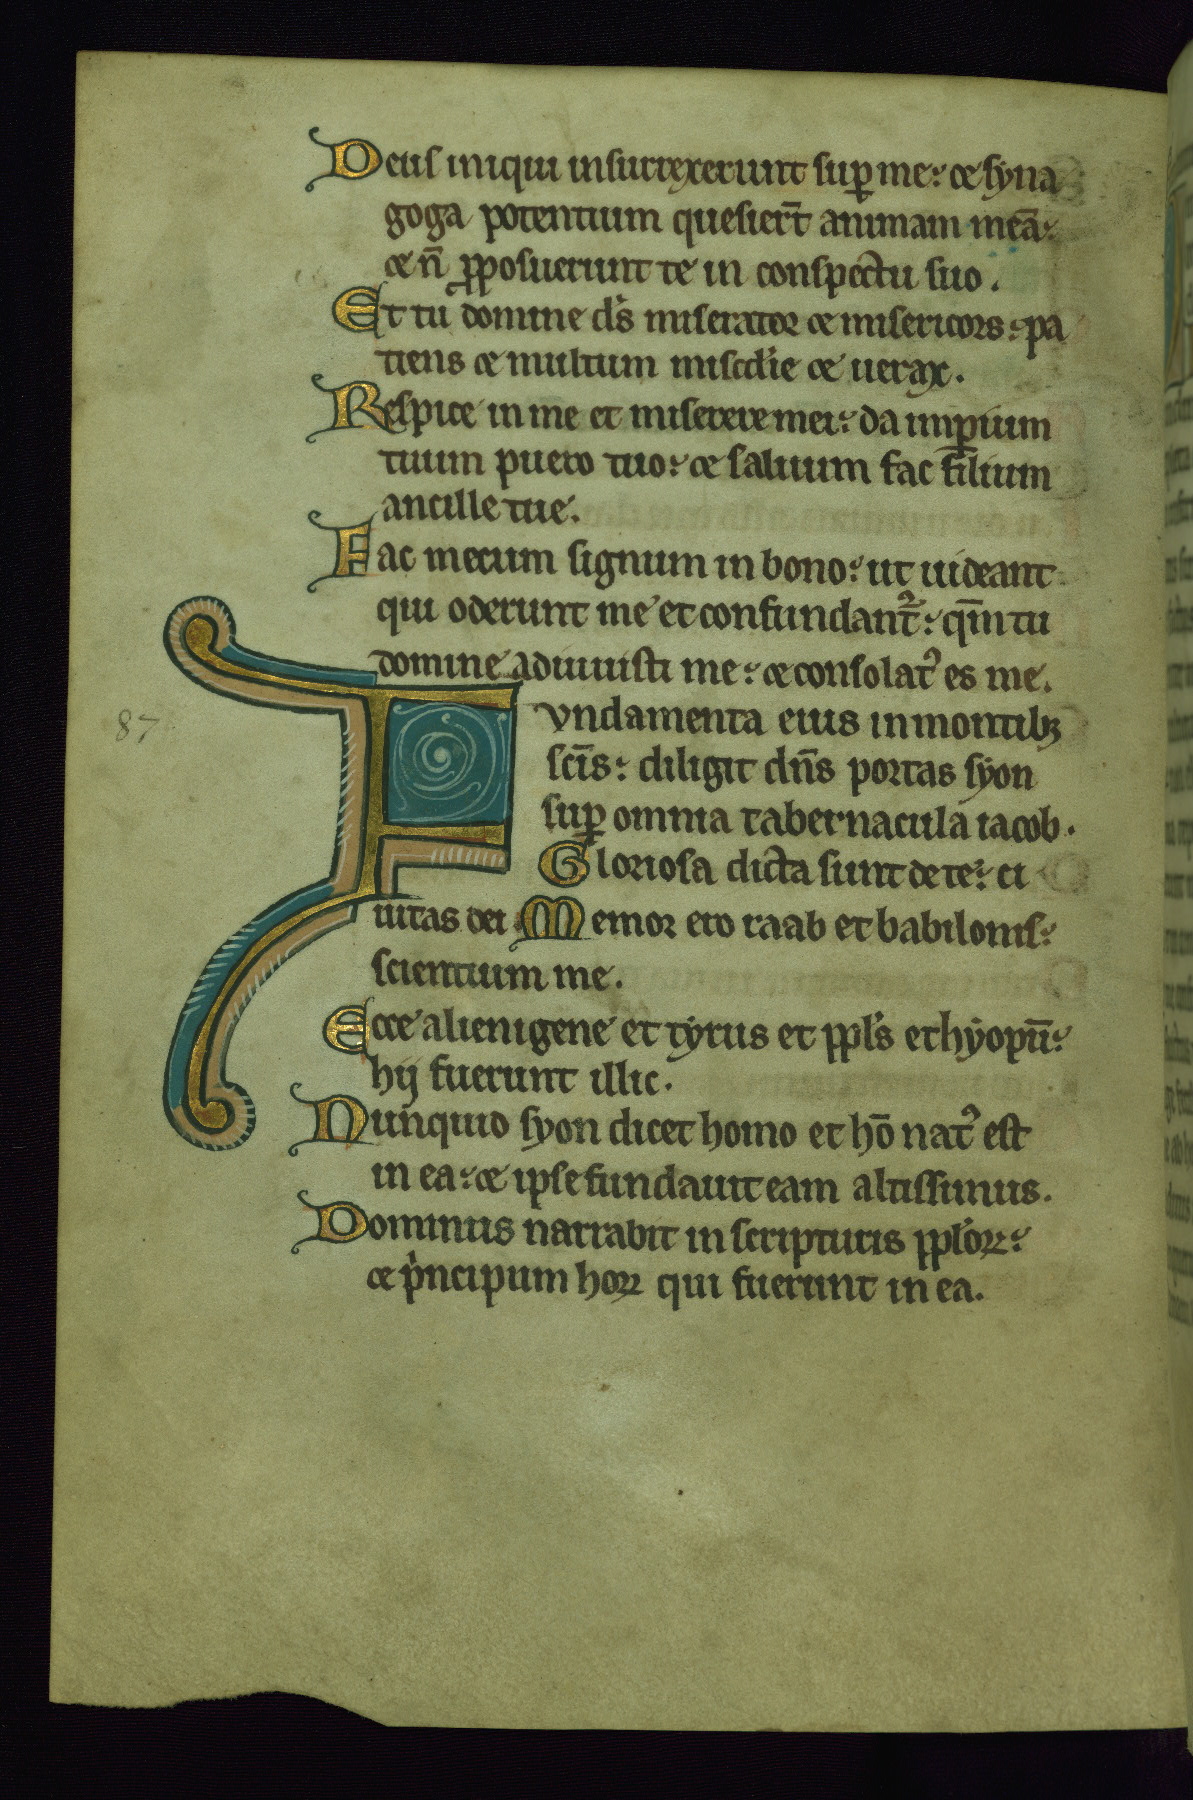 Deus iniqui insurrexerunt sup̱ me: ⁊ syna
goga potentium quesier̄t animam meā:
⁊ n̄ p̱posuerunt te in conspectu suo.
Et tu domine ds̄ miserator ⁊ misericors: pa
tiens ⁊ multum misc̄die ⁊ uerax.
Respice in me et miserere mei: da imp̱ium
tuum puero tuo: ⁊ saluum fac filium
ancille tue.
Fac mecum signum in bono: ut uideant
qui oderunt me et confundant᷑: qm̄ tu
domine adiuuisti me: ⁊ consolatꝰ es me.
Fvndamenta eius in montibꝫ
sc̄is: diligit dn̄s portas syon
sup̱ omnia tabernacula iacob.
Gloriosa dicta sunt de te: ci
uitas dei. Memor ero raab et babilonis:
scientium me.
87
Ecce alienigene et tyrus et ppl̄s ethyopū:
hij fuerunt illic.
Nunquid syon dicet homo et hō natꝰ est
in ea: ⁊ ipse fundauit eam altissimus.
Dominus narrabit in scripturis ppl̄oꝝ:
⁊ pⁱncipum hoꝝ qui fuerunt in ea.